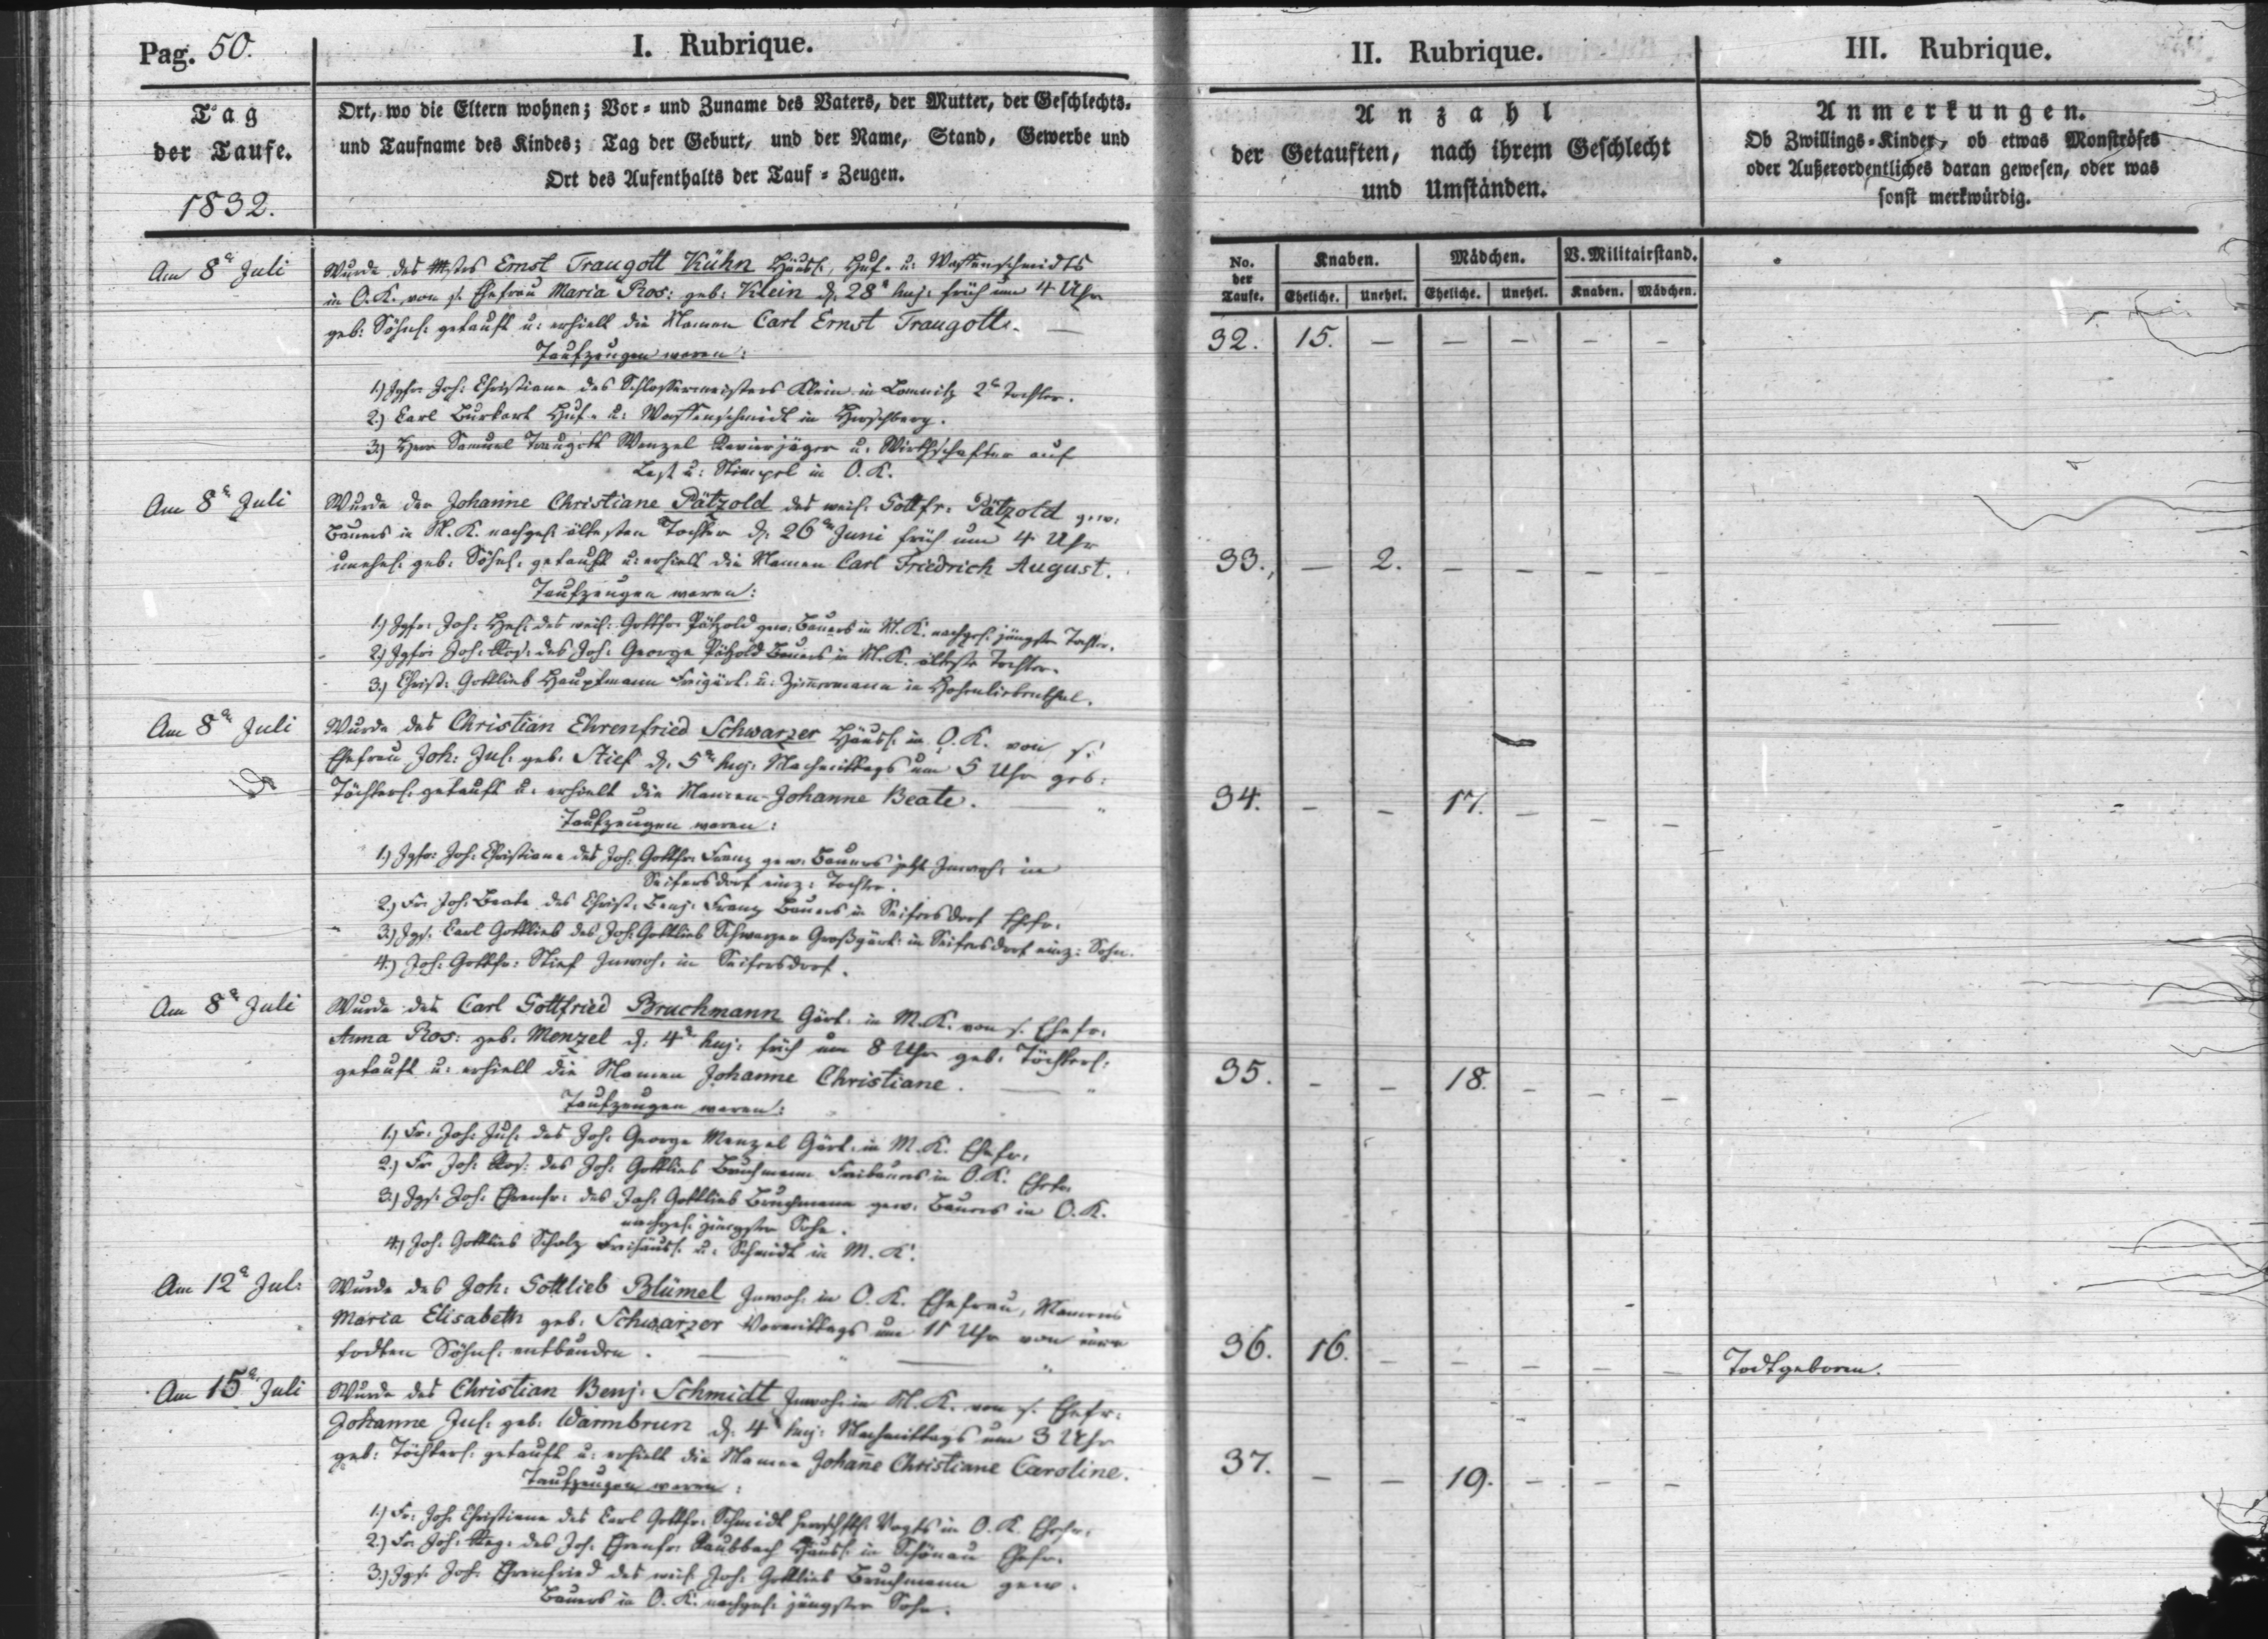 Pag. 50.
I. Rubrique.
II. Rubrique.
III. Rubrique.
Tag
der Taufe.
1832.
Ort, wo die Eltern wohnen; Vor- und Zuname des Vaters, der Mutter, der Geschlechts-
und Taufname des Kindes; Tag der Geburt, und der Name, Stand, Gewerbe und
Ort des Aufenthalts der Tauf-Zeugen.
Anzahl
der Getauften, nach ihrem Geschlecht
und Umständen.
Anmerkungen.
Ob Zwillings-Kinder, ob etwas Monströses
oder Außerordentliches daran gewesen, oder was
sonst merkwürdig.
No. der Taufe.
Knaben. Mädchen. V. Militairstand.
Eheliche. Unehel. Eheliche. Unehel. Knaben. Mädchen.
Am 8n Juli
Wurde des Mstrs Ernst Traugott Kühn Häusl. Huf- u: Waffenschmidts
in O. K. von s. Ehefrau Maria Ros: geb: Klein d. 28n huj: früh um 4 Uhr
geb: Söhnl. getauft u: erhielt die Namen Carl Ernst Traugott. —
Taufzeugen waren:
1.) Jgfr. Joh: Christiane des Schlossermeisters Klein in Lomnitz 2n Tochter.
2.) Carl Burkart Huf- u: Waffenschmidt in Hirschberg.
3.) Herr Samuel Traugott Wenzel Revierjäger u. Wirthschafter auf
u: Stimpel in O. K.
32. 15. — — — — —
Am 8n Juli
Wurde der Johanne Christiane Pätzold des weil. Gottfr: Pätzold gew.
Bauers in M. K. nachgel. ältesten Tochter d. 26n Juni früh um 4 Uhr
unehel. geb. Söhnl. getauft u: erhielt die Namen Carl Friedrich August.
Taufzeugen waren:
1.) Jgfr. Joh: Hel. des weil. Gottfr. Pätzold gew. Bauers in M. K. nachgel. jüngste Tochter.
2.) Jgfr. Joh: Ros: des Joh: George Pätzold Bauers in M. K. älteste Tochter.
3.) Christ: Gottlieb Hauptmann Freigärt. u: Zimmermann in Hohenliebenthal.
33. — 2. — — — —
Am 8n Juli
Wurde des Christian Ehrenfried Schwarzer Häusl. in O. K. von s.
Ehefrau Joh: Jul. geb. Stief d. 5n huj: Nachmittags um 5 Uhr geb:
Töchterl. getauft u: erhielt die Namen Johanne Beate. —
Taufzeugen waren:
1.) Jgfr. Joh: Christiane des Joh: Gottfr. Franz gew. Bauers jetzt Inwoh: in
Seifersdorf einz: Tochter.
2.) Fr. Joh: Beate des Christ. Benj. Franz Bauers in Seifersdorf Ehefr.
3.) Jgs. Carl Gottlieb des Joh: Gottlieb Schwarzer Großgärt. in Seifersdorf einz: Sohn.
4.) Joh: Gottfr: Stief Inwoh. in Seifersdorf.
34. — — 17. — — —
Am 8n Juli
Wurde des Carl Gottfried Bruchmann Gärt. in M. K. von s. Ehefr.
Anna Ros: geb. Menzel d. 4n huj: früh um 8 Uhr geb: Töchterl.
getauft u: erhielt die Namen Johanne Christiane. —
Taufzeugen waren:
1.) Fr. Joh: Jul. des Joh: George Menzel Gärt. in M. K. Ehefr.
2.) Fr. Joh: Ros: des Joh: Gottlieb Bruchmann Freibauers in O. K. Ehefr.
3.) Jgs. Joh: Ehrenfr: des Joh: Gottlieb Bruchmann gew. Bauers in O. K.
nachgel. jüngster Sohn.
4.) Joh: Gottlieb Scholz Freihäusl. u: Schmidt in M. K.
35. — — 18. — — —
Am 12n Jul:
Wurde des Joh: Gottlieb Blümel Inwoh: in O. K. Ehefrau, Namens
Maria Elisabeth geb. Schwarzer Vormittags um 11 Uhr von einem
todten Söhnl. entbunden.
36. 16. — — — — —
Todtgeboren.
Am 15n Juli
Wurde des Christian Benj: Schmidt Inwoh: in M. K. von s. Ehefr:
Johanne Jul. geb. Warmbrun d. 4n huj: Nachmittags um 3 Uhr
geb: Töchterl. getauft u: erhielt die Namen Johañe Christiane Caroline.
Taufzeugen waren:
1.) Fr. Joh: Christiane des Carl Gottfr. Schmidt herrschftl. Vogts in O. K. Ehefr.
2.) Fr. Joh: des Joh: Ehrenfr. Raubbach Häusl. in Schönau Ehefr.
3.) Jgs. Joh: Ehrenfried des weil. Joh: Gottlieb Bruchmann gew.
Bauers in O. K. nachgel. jüngster Sohn.
37. — — 19. — — —